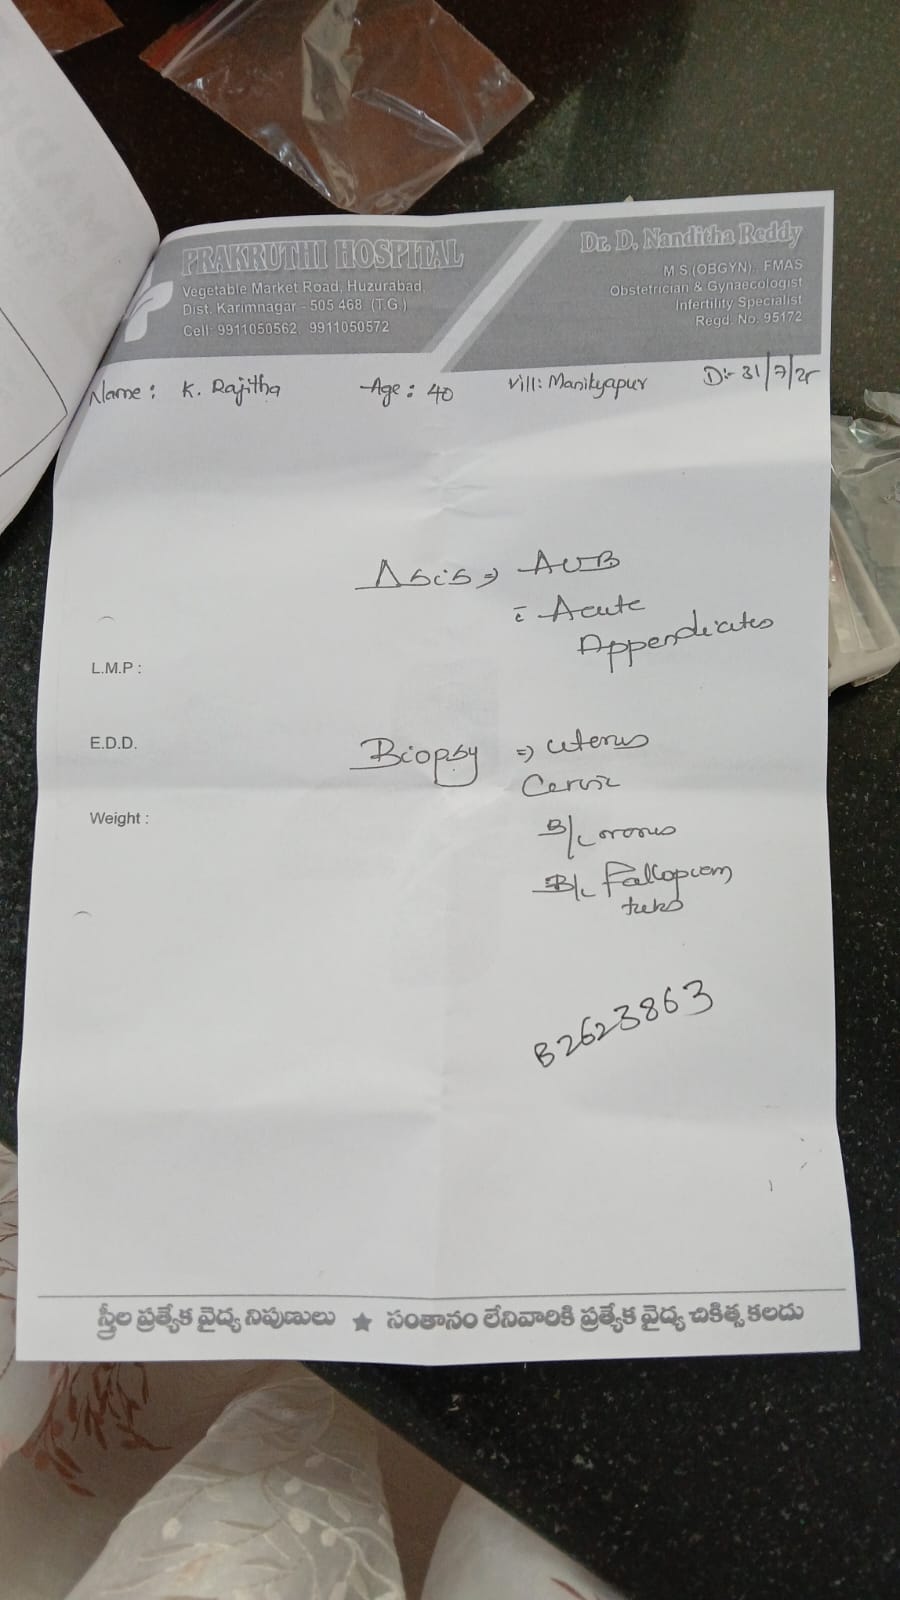 PRAKRUTHI HOSPITAL
Vegetable Market Road, Huzurabad,
Dist. Karimnagar - 505 468 (T.G.)
Cell: 9911050562, 9911050572
Dr. D. Nanditha Reddy
M.S.(OBGYN), FMAS
Obstetrician & Gynaecologist
Infertility Specialist
Regd. No. 95172
Name: K. Rajitha Age: 40 Vill: Manikyapur D:- 31/7/25
⇒ AUB
c̄ Acute
Appendicates
L.M.P :
E.D.D.
Biopsy ⇒ uterus
Cervix
Weight :
B/L
B/L Fallopian
B2623863
స్త్రీల ప్రత్యేక వైద్య నిపుణులు ★ సంతానం లేనివారికి ప్రత్యేక వైద్య చికిత్స కలదు